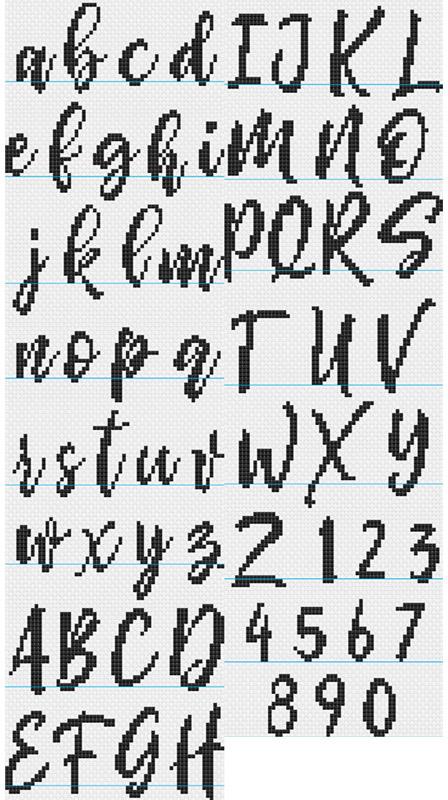 a b c d
e f g h i
j k l m
n o p q
r s t u v
w x y z
A B C D
E F G H
I J K L
M N O
P Q R S
T U V
W X Y
Z 1 2 3
4 5 6 7
8 9 0